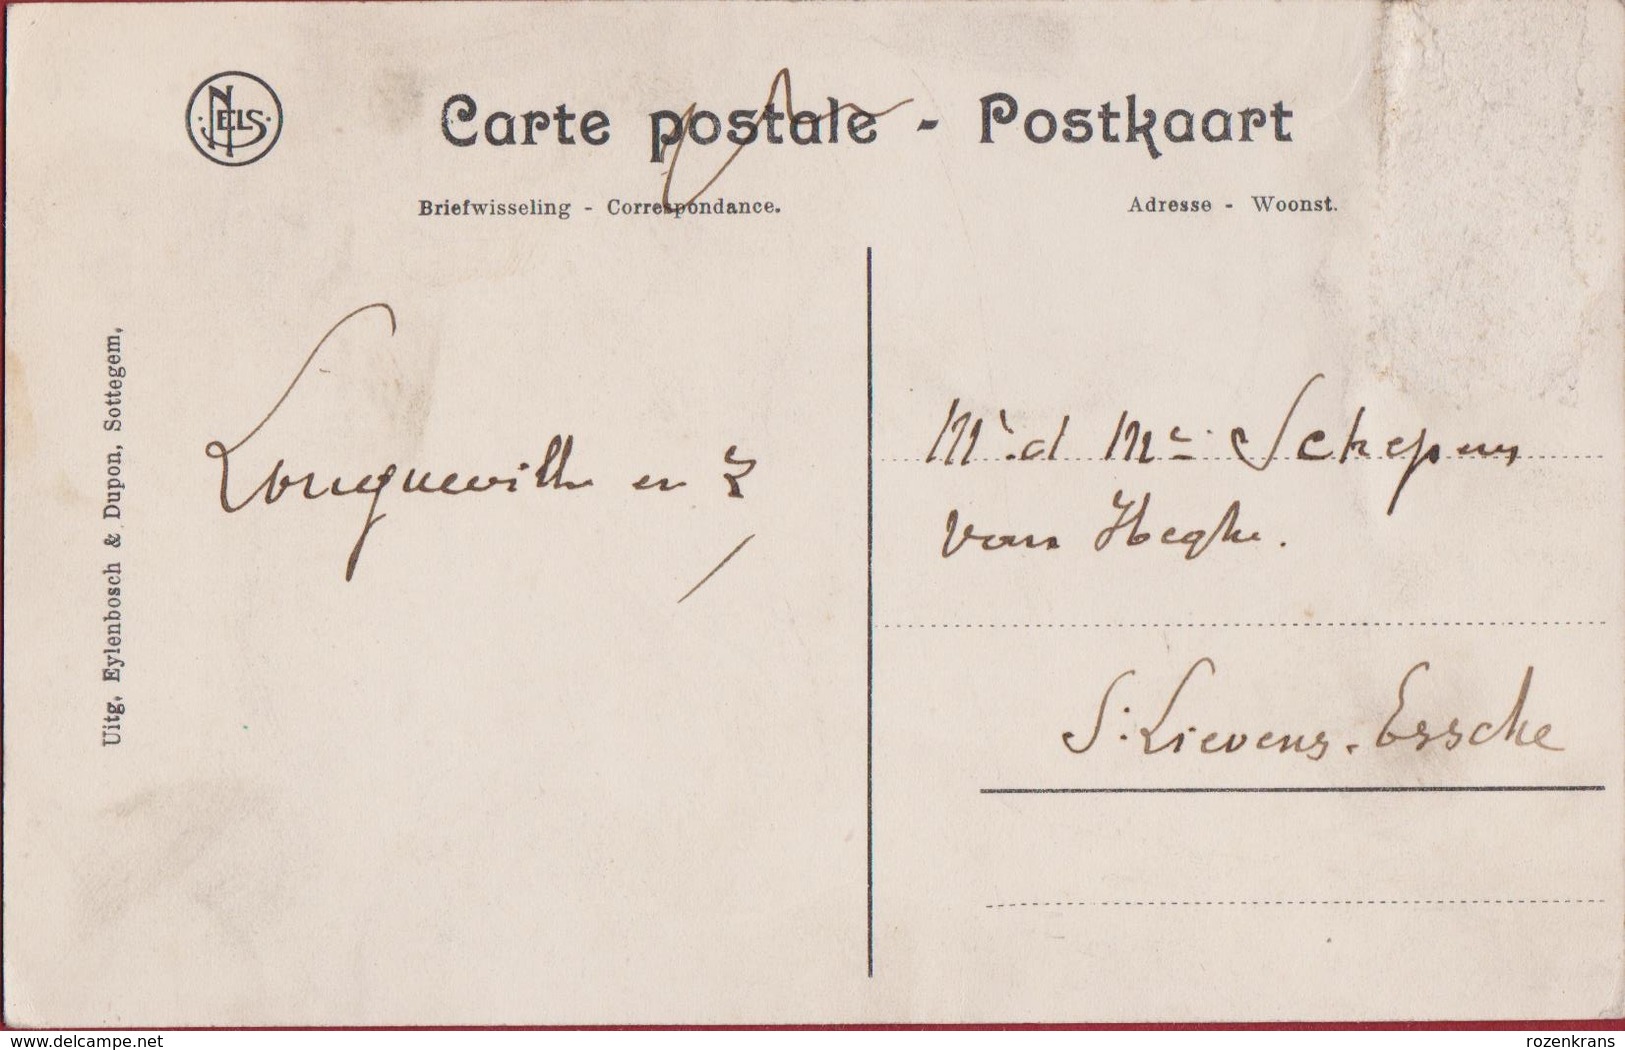 NELS
Carte postale - Postkaart
Briefwisseling - Correspondance.
Adresse - Woonst.
Uitg. Eylenbosch & Dupon, Sottegem.
Longueville en Z
Mr. d Mr. Schepens
van Heghe.
S. Lievens. Essche
www.delcampe.net
rozenkrans